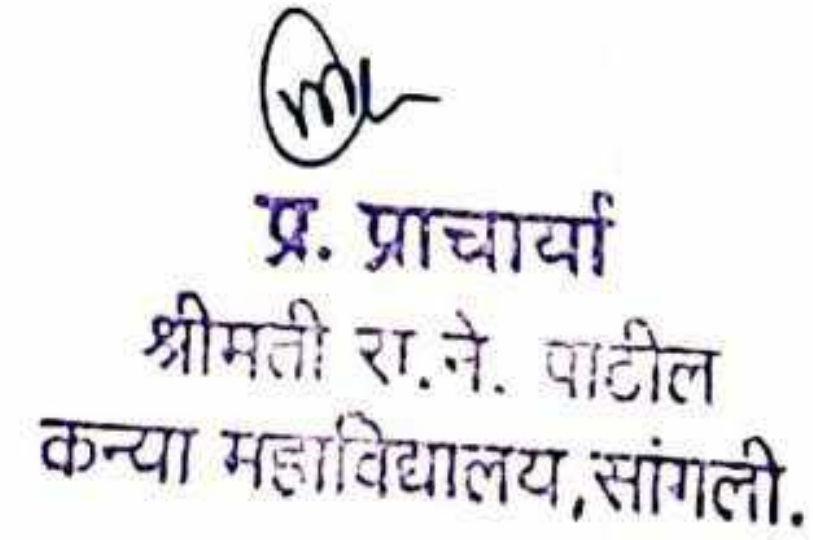 प्र. प्राचार्या
श्रीमती रा.ने. पाटील
कन्या महाविद्यालय,सांगली.